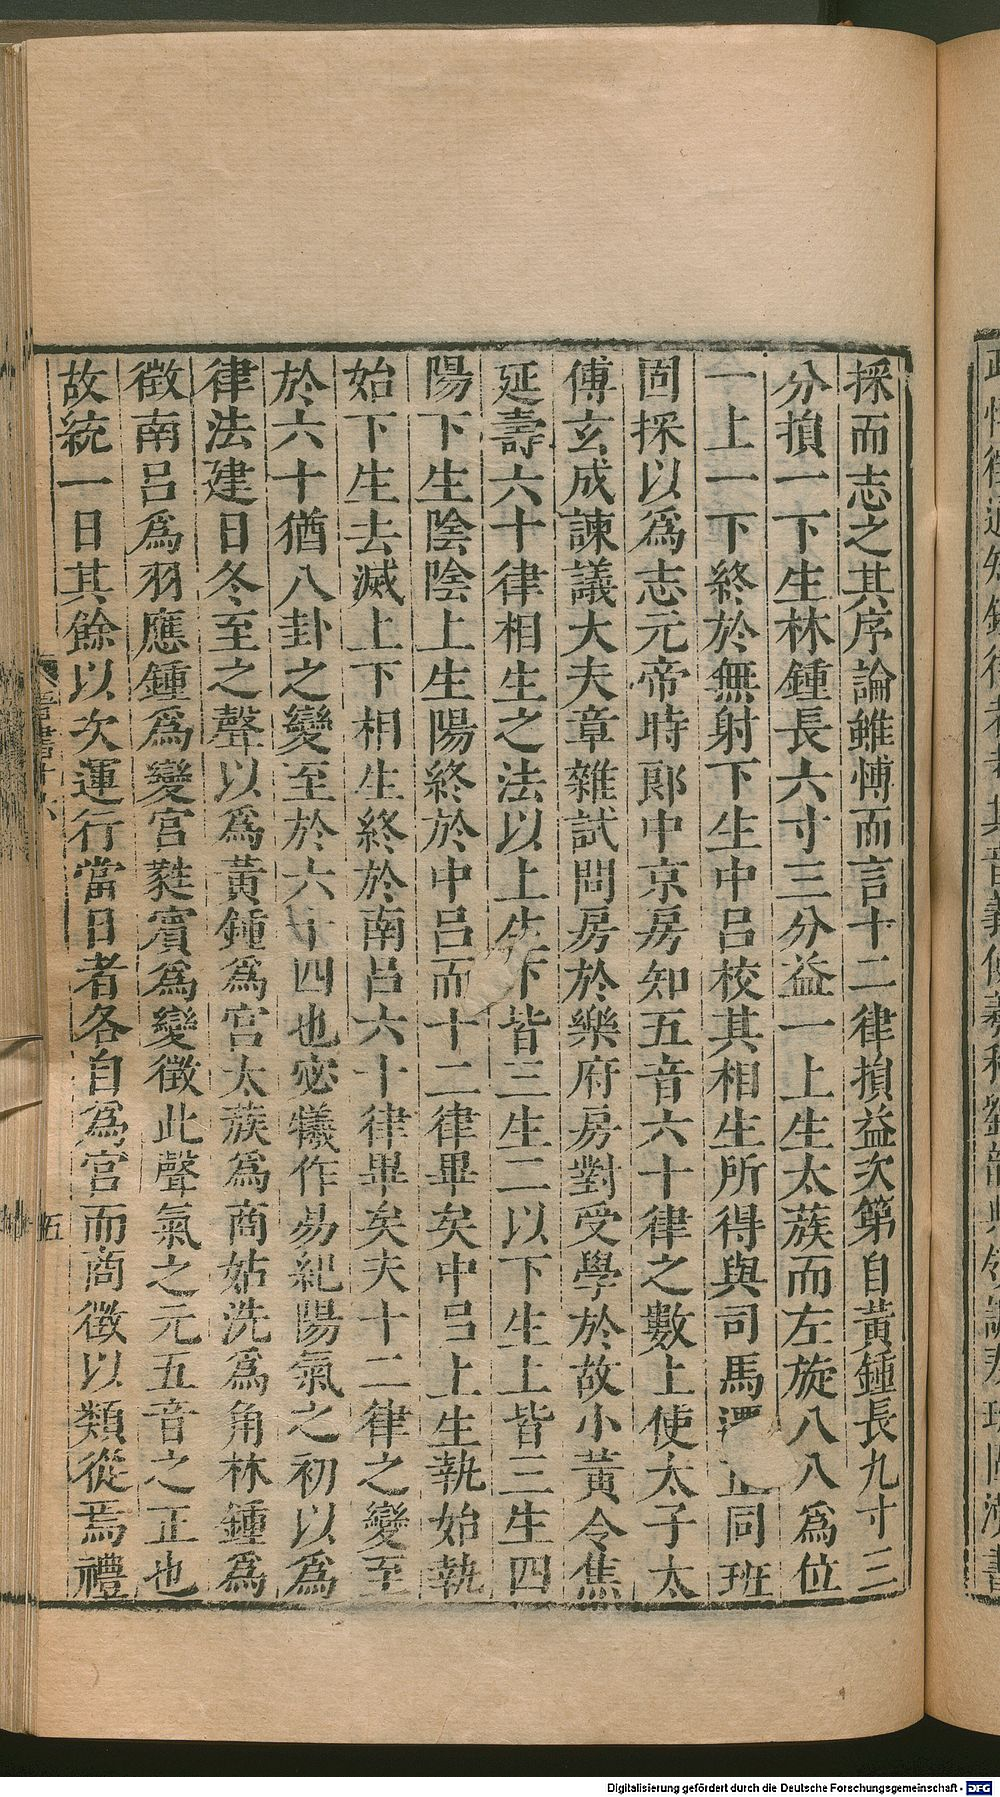 採而志之其序論雖愽而言十二律損益次第自黃鍾長九寸三
分損一下生林鍾長六寸三分益一上生太蔟而左旋八八爲位
一上一下終於無射下生中呂校其相生所得與司馬正同班
固採以爲志元帝時郎中京房知五音六十律之數上使太子太
傅玄成諫議大夫章雜試問房於樂府房對受學於故小黃令焦
延壽六十律相生之法以上生下皆三生二以下生上皆三生四
陽下生陰陰上生陽終於中呂而十二律畢矣中呂上生執始執
始下生去滅上下相生終於南呂六十律畢矣夫十二律之變至
於六十猶八卦之變至於六十四也宓犧作易紀陽氣之初以爲
律法建日冬至之聲以爲黃鍾爲宮太蔟爲商姑洗爲角林鍾爲
徴南呂爲羽應鍾爲變宮蕤賓爲變徴此聲氣之元五音之正也
故統一日其餘以次運行當日者各自爲宮而商徴以類從焉禮
晉書十六
五
Digitalisierung gefördert durch die Deutsche Forschungsgemeinschaft - DFG